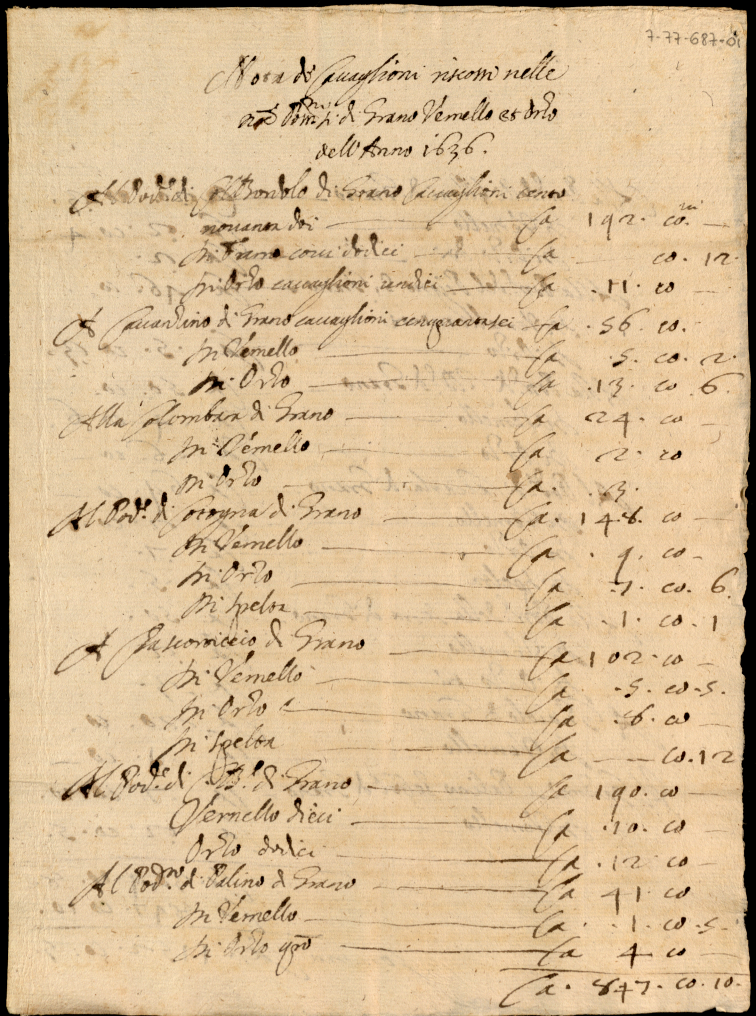 7-77-687-01
Nota di Cavaglioni riscossi nelle
di Grano Vernello et Orzo
dell'Anno 1636.
Al Pod.e di Bondolo di Grano Cavaglioni cento
novanta doi Ca 192. co.
In Grano covi dodici Ca co. 12
In Orzo cavaglioni undici Ca .11. co
A di Grano cavaglioni cinquantasei Ca .56. co.
In Vernello Ca .5. co. 2.
In Orzo Ca .13. co 6.
Alla Colombara di Grano Ca 24. co
In Vernello Ca 2. co
In Orzo Ca. .3.
Al Pod.e di Cotogna di Grano Ca. 148. co
In Vernello Ca . 9. co.
In Orzo Ca .7. co. 6.
In spelta Ca .1. co. 1
A di Grano Ca 102. co
In Vernello Ca .5. co. 5.
In Orzo Ca .8. co
In spelta Ca co. 12
Al Pod.e di di Grano Ca 190. co
Vernello dieci Ca .10. co
Orzo dodici Ca .12 co
Al Pod.no di Palino di Grano Ca 41 co
In Vernello Ca .1. co. 5.
In Orzo Ca 4 co
Ca. 847. co. 10.